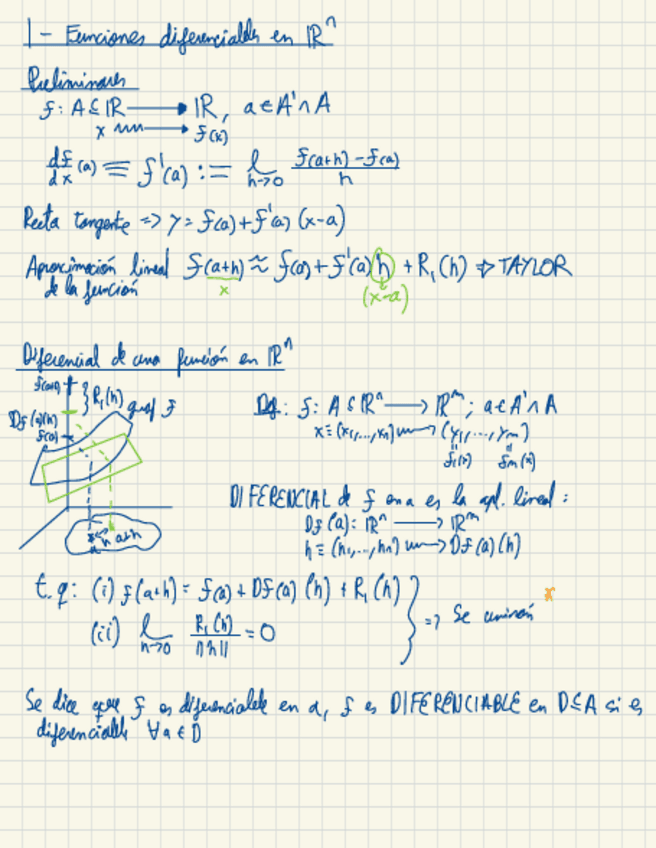 1 - Funciones diferenciables en ℝⁿ
Preliminares
f: A ⊆ ℝ ⟶ ℝ, a ∈ A' ∩ A
x ⟿ f(x)
df/dx (a) ≡ f'(a) := l_{h→0} (f(a+h) - f(a))/h
Recta tangente => y = f(a) + f'(a) (x-a)
Aproximación lineal f(a+h) ≈ f(a) + f'(a) h + R₁(h) => TAYLOR
de la función x (x-a)
Diferencial de una función en ℝⁿ
f(a+h) } R₁(h) graf f
Df(a)(h)
f(a)
a h a+h
Df: f: A ⊆ ℝⁿ ⟶ ℝᵐ; a ∈ A' ∩ A
x ≡ (x₁,...,xₙ) ⟿ (y₁,...,yₘ)
f₁(x) fₘ(x)
DIFERENCIAL de f en a es la apl. lineal:
Df(a): ℝⁿ ⟶ ℝᵐ
h ≡ (h₁,...,hₙ) ⟿ Df(a)(h)
t.q: (i) f(a+h) = f(a) + Df(a) (h) + R₁(h)
(ii) l_{h→0} R₁(h)/||h|| = 0 } => Se
Se dice que f es diferenciable en a, f es DIFERENCIABLE en D ⊆ A si es
diferenciable ∀a ∈ D